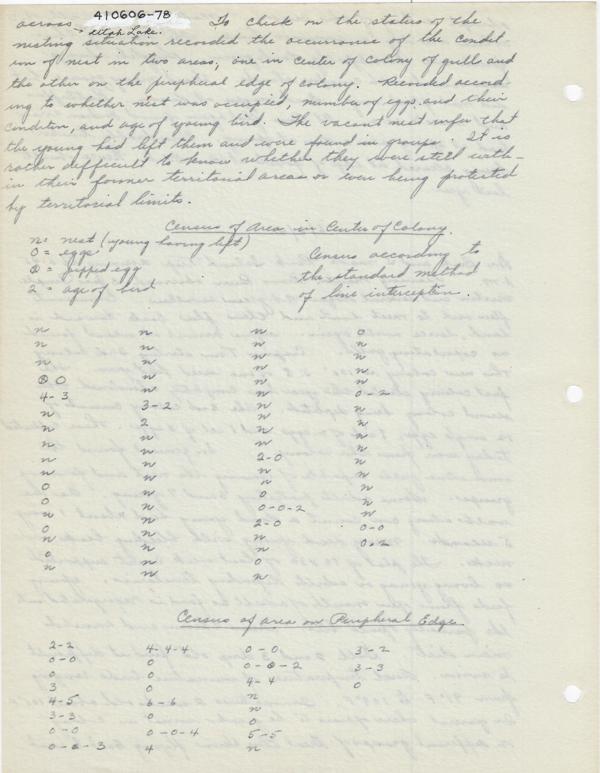 410606-78
across Utah Lake. To check on the status of the
nesting situation recorded the occurrance of the condit-
ion of nest in two areas, one in center of colony of gulls and
the other on the peripheal edge of colony. Recorded accord
ing to whether nest was occupied, number of eggs and their
condition, and age of young bird. The vacant nest infer that
the young had left them and were found in groups. It is
rather difficult to know whether they were still with-
in their former territorial areas or were being protected
by territorial limits.
Census of Area in Center of Colony.
n = nest (young having left)
0 = eggs
⊗ = pipped egg
2 = age of bird
Census according to
the standard method
of line interception.
n n n 0
n n n n
n n n n
⊗ 0 n n n
4-3 n n 0-2
n 3-2 n n
n 2 n n
n n n n
n n 2-0 n
n n n n
0 n 0 n
0 n 0-0-2 n
n n 2-0 0-0
0 n n 0-2
n n n
0 n 0
n n n
Census of area on Peripheral Edge.
2-2 4-4-4 0-0 3-2
0-0 0 0-⊗-2 3-3
0 0 4-4 0
3 0 n
4-5 6-6 n
3-3 0 0
0-0 0-0-4 5-5
0-6-3 4 n